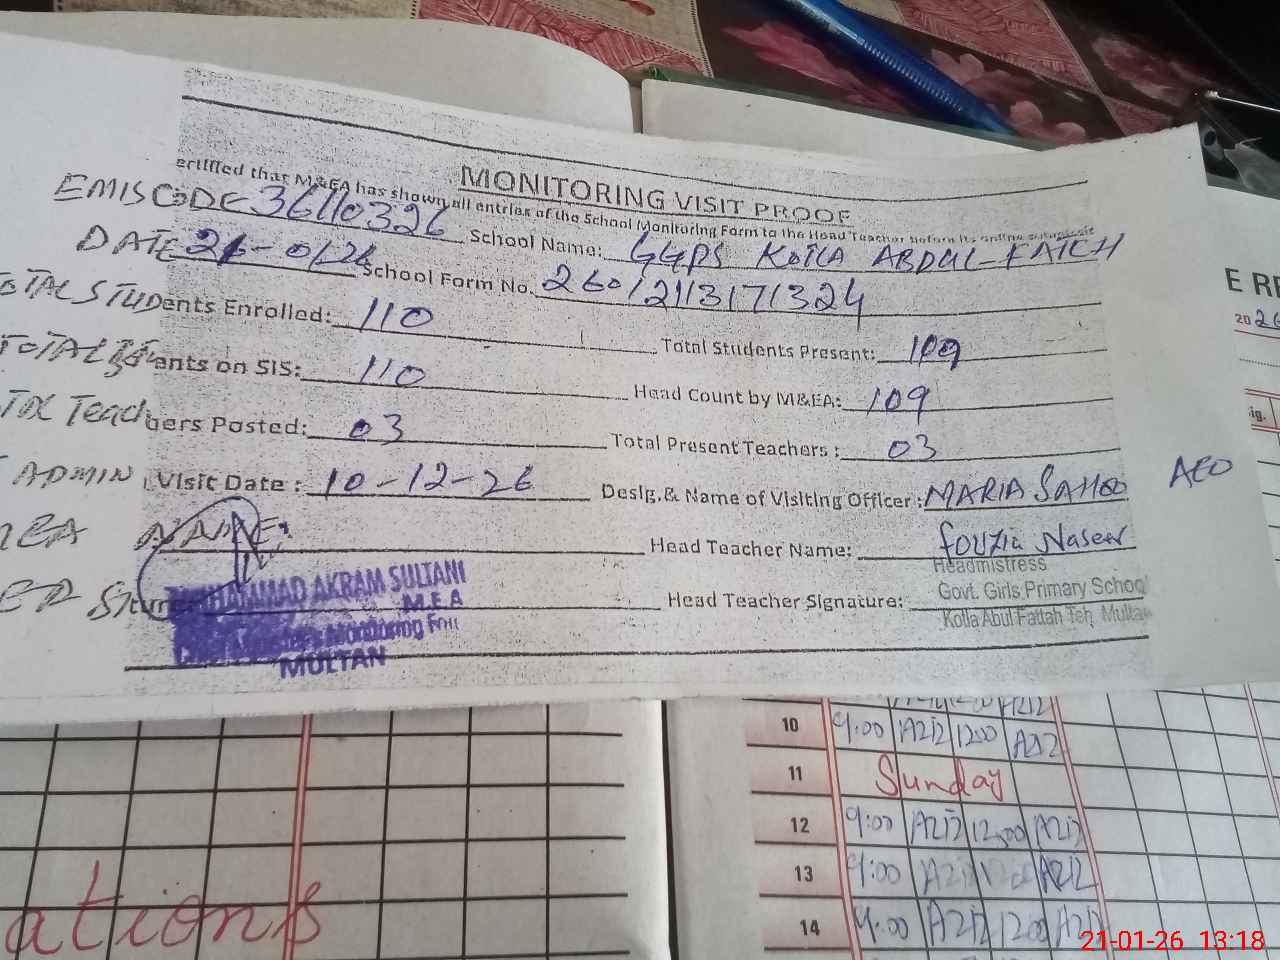 MONITORING VISIT PROOF
ertified that M&EA has shown all entries of the School Monitoring Form to the Head Teacher before its online
EMIS CODE 36110326 School Name: GGPS KOTLA ABDUL-FATEH
DATE 21-01-26 School Form No. 26012113171324
OTAL STUDents Enrolled: 110 Total Students Present: 109
TOTAL ents on SIS: 110 Head Count by M&EA: 109
Teachers Posted: 03 Total Present Teachers: 03
ADMIN Visit Date: 10-12-26 Desig. & Name of Visiting Officer: MARIA SAHOO AEO
NAME: Head Teacher Name: Fouzia Naseer
Head Teacher Signature:
Headmistress
Govt. Girls Primary School
Kotla Abul Fattah Teh, Multan
MUHAMMAD AKRAM SULTANI
M.E.A
Monitoring
MULTAN
E RE
20 26
ig.
10 9:00 1200
11 Sunday
12 9:00 12:00
13 9:00
14 9:00 1200
ations
21-01-26 13:18